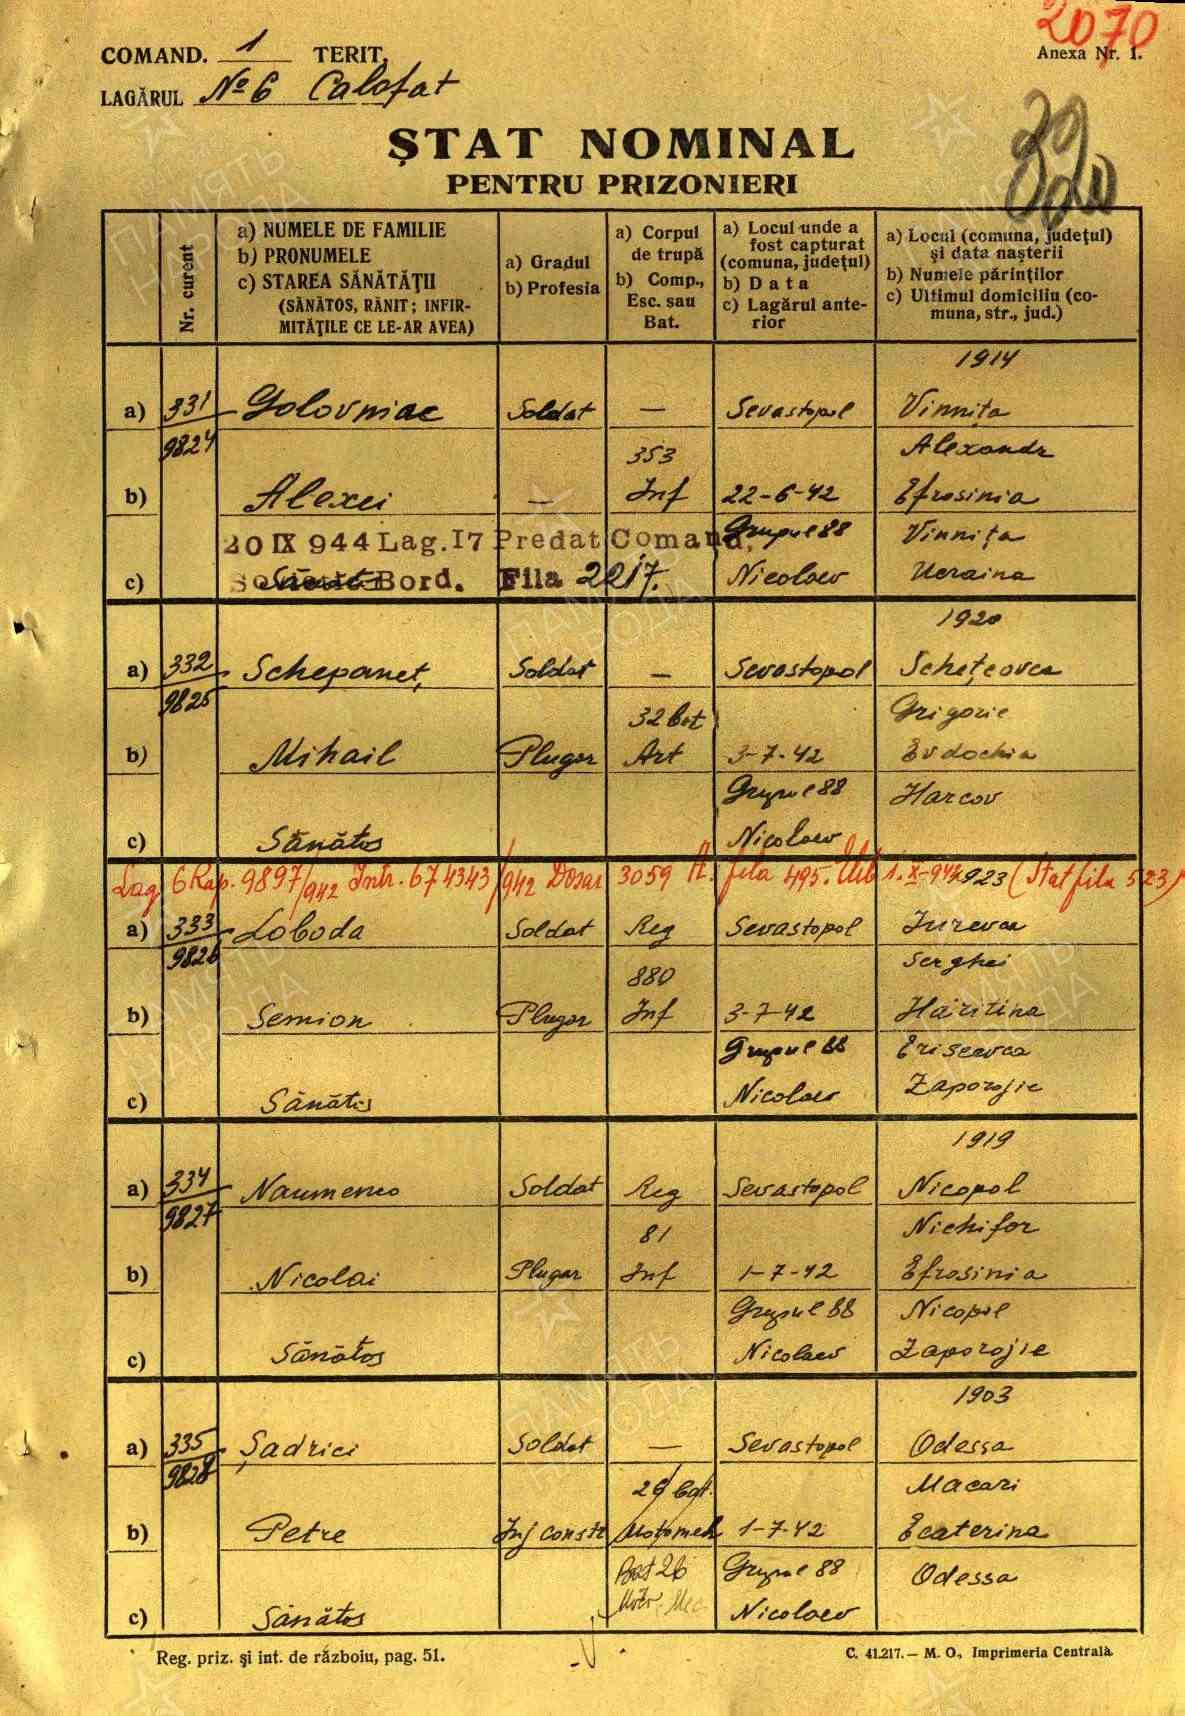 2070
COMAND. 1 TERIT.
Anexa Nr. 1.
LAGĂRUL No 6 Calafat
ȘTAT NOMINAL
PENTRU PRIZONIERI
Nr. curent
a) NUMELE DE FAMILIE
b) PRONUMELE
c) STAREA SĂNĂTĂȚII
(SĂNĂTOS, RĂNIT; INFIR-
MITĂȚILE CE LE-AR AVEA)
a) Gradul
b) Profesia
a) Corpul
de trupă
b) Comp.,
Esc. sau
Bat.
a) Locul unde a
fost capturat
(comuna, județul)
b) Data
c) Lagărul ante-
rior
a) Locul (comuna, județul)
și data nașterii
b) Numele părinților
c) Ultimul domiciliu (co-
muna, str., jud.)
1914
a) 331 Golovniac Soldat — Sevastopol Vinnița
9824 353 Alexandr
b) Alexei — Inf 22-6-42 Efrosinia
20 IX 944 Lag. 17 Predat Comand. Grupul 88 Vinnița
c) Bord. Fila 2217. Nicolaev Ucraina
1920
a) 332 Schepaneț Soldat — Sevastopol Schețeovca
9825 32 bat Grigorie
b) Mihail Plugar Art 3-7-42 Evdochia
Grupul 88 Harcov
c) Sănătos Nicolaev
Lag 6 Rap. 9897/942 Intr. 674343/942 Dosar 3059 A. fila 495. 1.X-944 923 (Stat fila 523)
a) 333 Loboda Soldat Reg Sevastopol Iurevca
9826 880 Serghei
b) Semion Plugar Inf 3-7-42 Haritina
Grupul 88
c) Sănătos Nicolaev Zaporojie
1919
a) 334 Naumenco Soldat Reg Sevastopol Nicopol
9827 81 Nichifor
b) Nicolai Plugar Inf 1-7-42 Efrosinia
Grupul 88 Nicopol
c) Sănătos Nicolaev Zaporojie
1903
a) 335 Șadrici Soldat — Sevastopol Odessa
9828 26 bat. Macari
b) Petre Inj constr Motomek 1-7-42 Ecaterina
Bat 26 Grupul 88 Odessa
c) Sănătos Motor. Mec Nicolaev
Reg. priz. și int. de războiu, pag. 51.
C. 41.217.— M. O., Imprimeria Centrală.
ПАМЯТЬ
НАРОДА